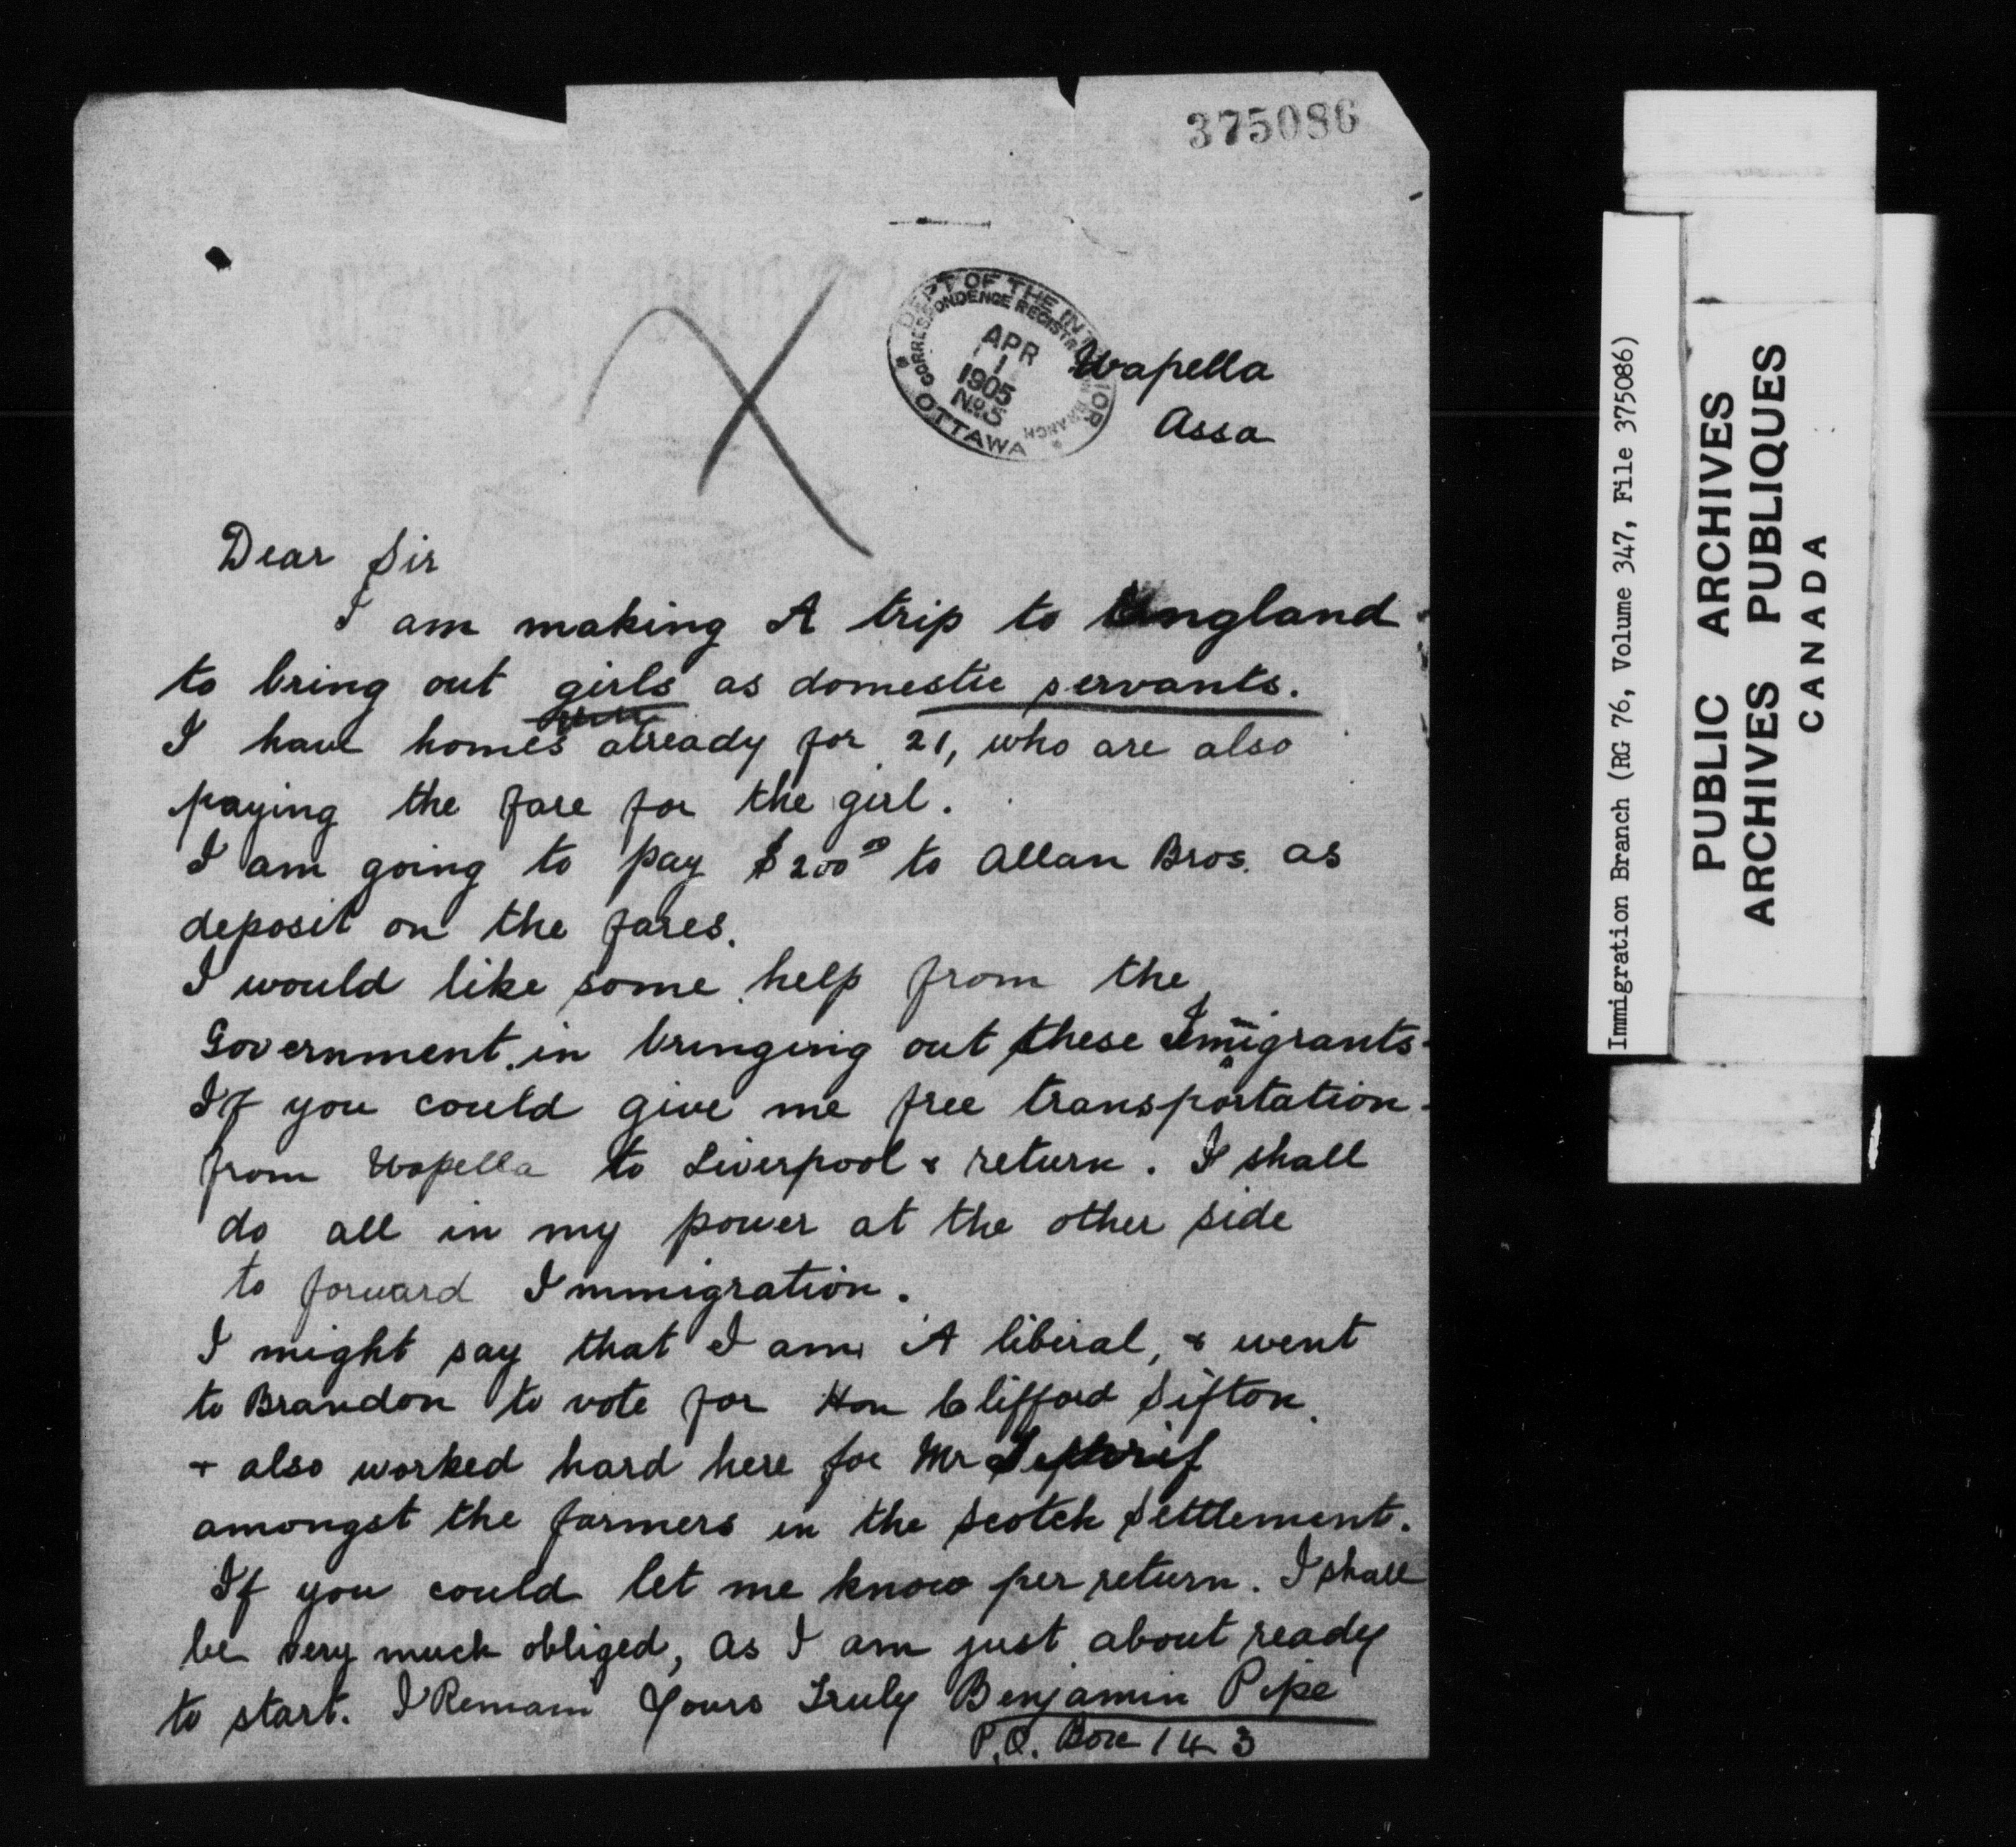 375086
DEPT OF THE INTERIOR
CORRESPONDENCE REGISTRATION BRANCH
APR
1
1905
No. 5
OTTAWA
Wapella
Assa
Dear Sir
I am making A trip to England
to bring out girls as domestic servants.
I have homes already for 21, who are also
paying the fare for the girl.
I am going to pay $200⁰⁰ to Allan Bros. as
deposit on the fares.
I would like some help from the
Government in bringing out these Immigrants
If you could give me free transportation
from Wapella to Liverpool & return. I shall
do all in my power at the other side
to forward Immigration.
I might say that I am A liberal, & went
to Brandon to vote for Hon Clifford Sifton.
+ also worked hard here for Mr
amongst the farmers in the Scotch Settlement.
If you could let me know per return. I shall
be very much obliged, as I am just about ready
to start. I Remain Yours Truly Benjamin Pipe
P.O. Box 143
Immigration Branch (RG 76, Volume 347, File 375086)
PUBLIC ARCHIVES
ARCHIVES PUBLIQUES
CANADA